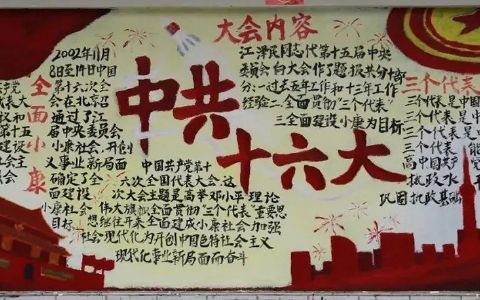 大会内容
中共
十六大
全面小康
2002年11月
8日至14日中国
共产党第十六次全
会在北京召
通过了江
届中央委员会
小康社会、开创
义事业新局面
确定了全
面建设
小康社会
目标
江泽民同志代第十五届中央
委员会向大会作了题
分:一过去五年工作和十三年工作
经验二、全面贯彻"三个代表"
三全面建设小康为目标
中国共产党第十
六次全国代表大会,这
次大会主题是高举邓小平理论
伟大旗帜全面贯彻"三个代表"重要思
想继往开来全面建成小康社会加强
社会现代化为开创中国色特社会主义
现代化事业新局面而奋斗
三个代表
三个代表是中
三个代表是
三个代表,能
三个代表是
高中国共产
执政水
巩固执政基础